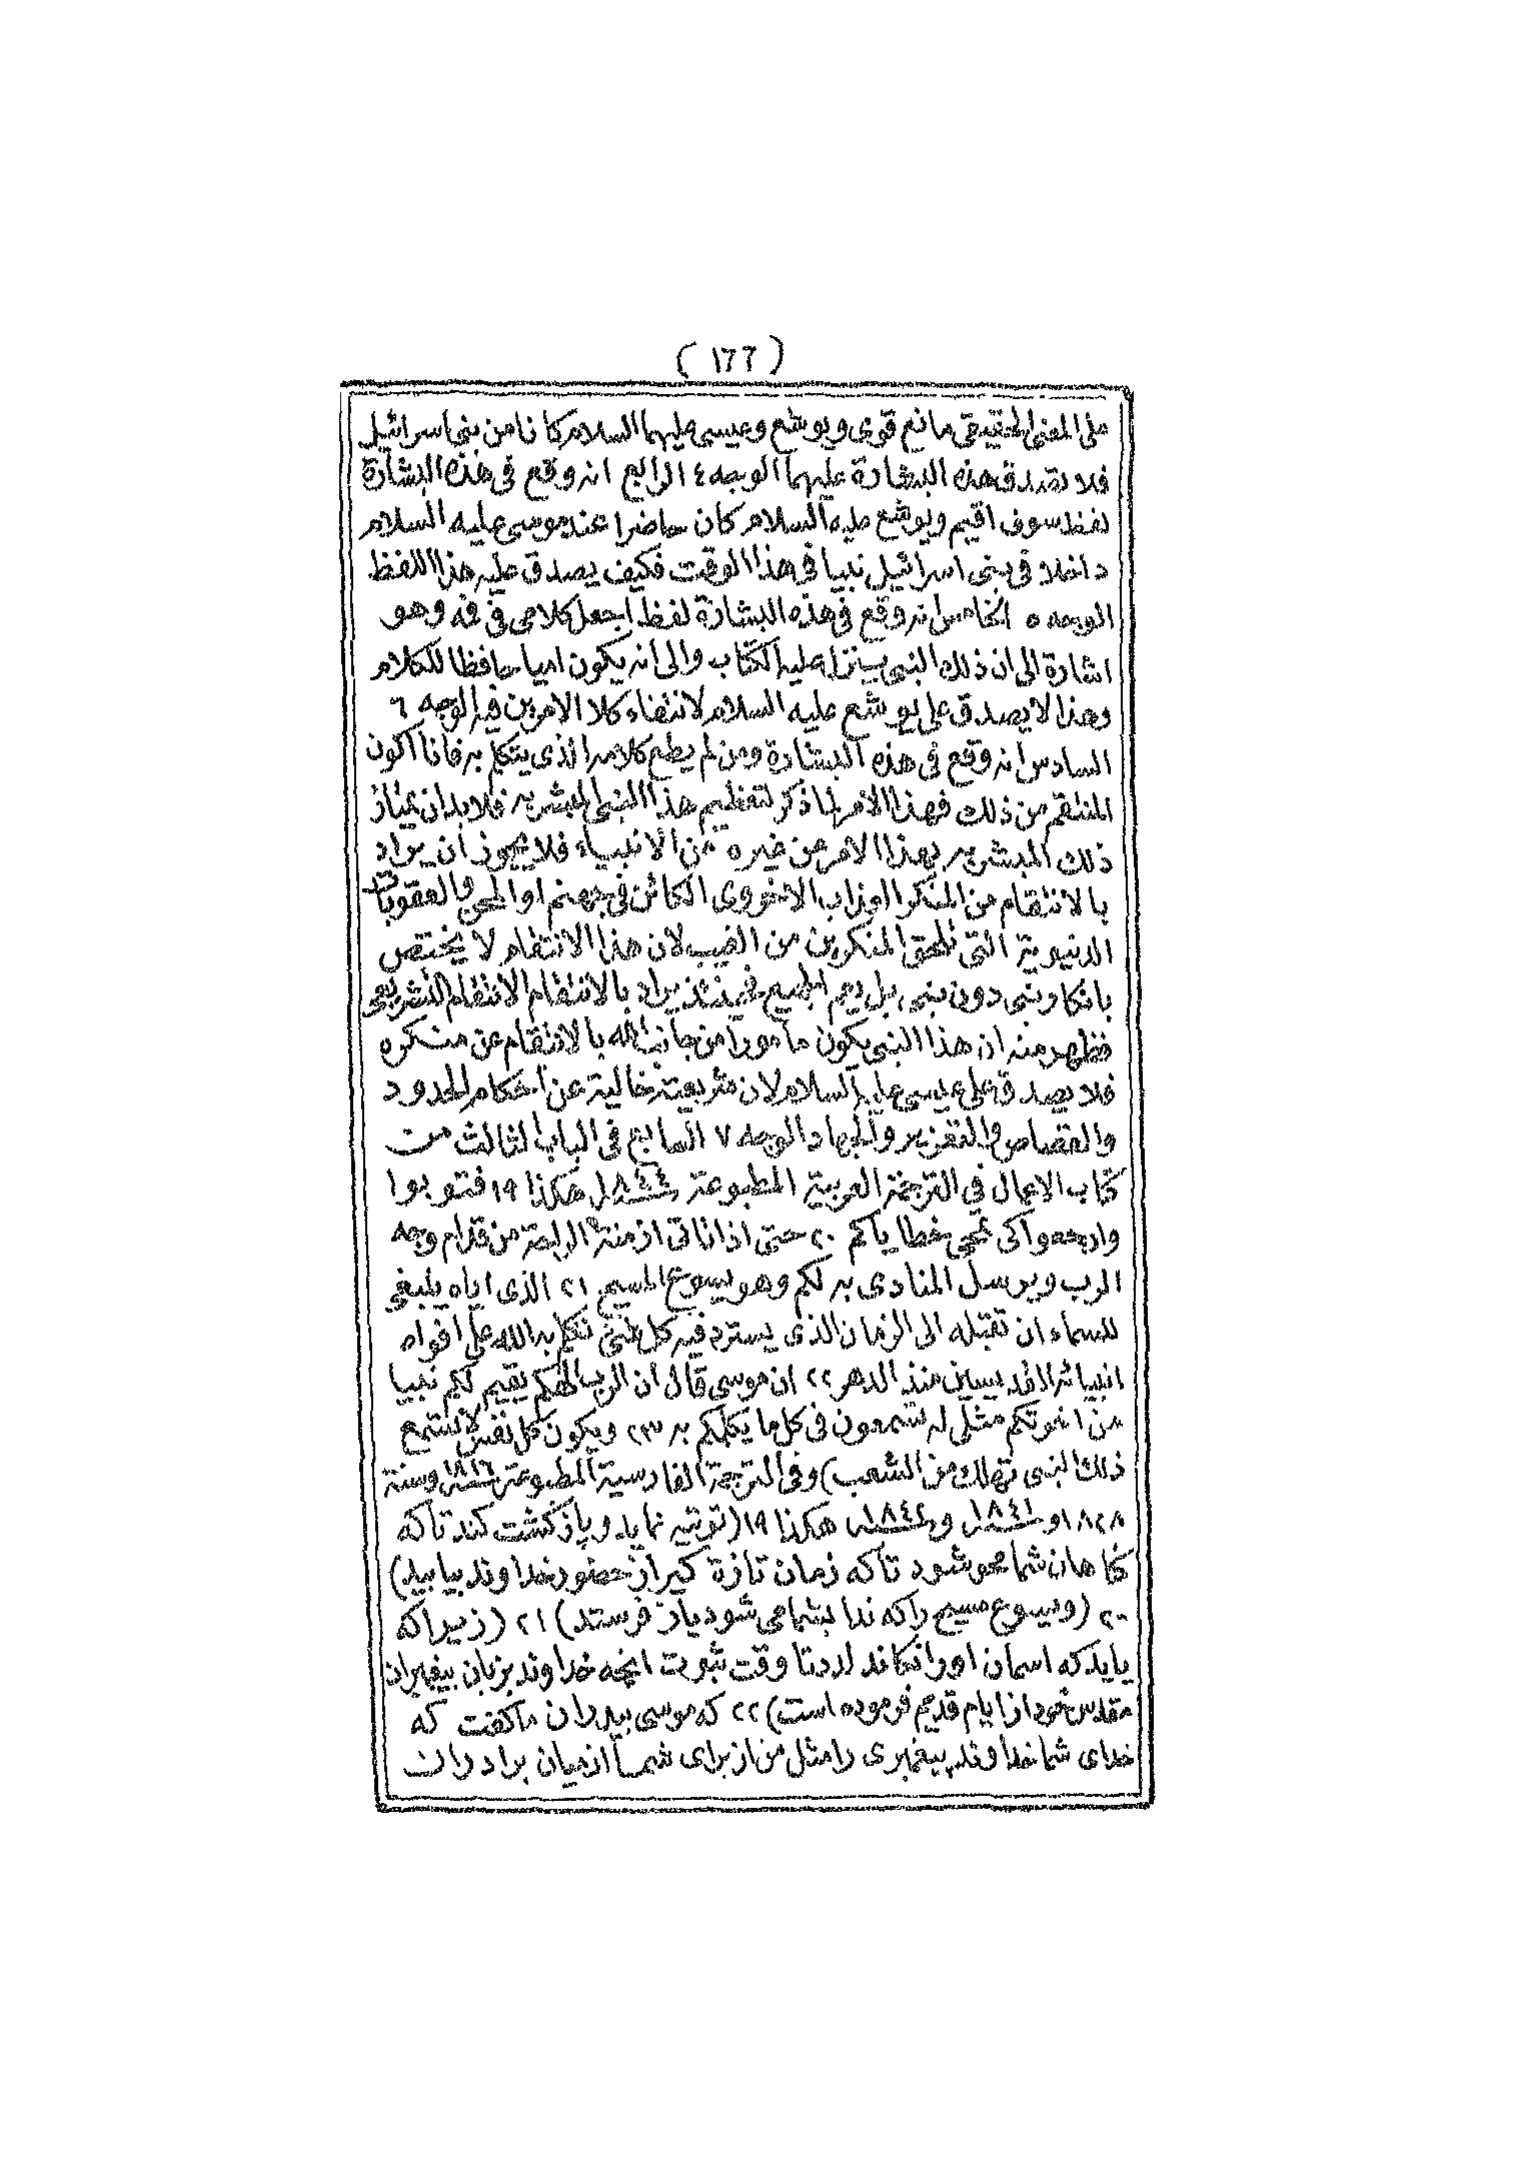 ( ١٦٦ )
على المعنى الحقيقى مانع قوى ويوشع وعيسى عليهما السلام كانا من بنى اسرائيل
فلا تصدق هذه البشارة عليهما الوجه ٤ الرابع انه وقع فى هذه البشارة
لفظ سوف اقيم ويوشع عليه السلام كان حاضرا عند موسى عليه السلام
داخلا فى بنى اسرائيل نبيا فى هذا الوقت فكيف يصدق عليه هذا اللفظ
الوجه ٥ الخامس انه وقع فى هذه البشارة لفظ اجعل كلامى فى فمه وهو
اشارة الى ان ذلك النبى سينزل عليه الكتاب والى انه يكون اميا حافظا للكلام
وهذا لا يصدق على يوشع عليه السلام لانتفاء كلا الامرين فيه الوجه ٦
السادس انه وقع فى هذه البشارة ومن لم يطع كلامه الذى يتكلم به فانا اكون
المنتقم من ذلك فهذا الامر لما ذكر لتعظيم هذا النبى المبشر به فلا بد ان يمتاز
ذلك المبشر به بهذا الامر من غيره من الانبياء فلا يجوز ان يراد
بالانتقام من المنكر العذاب الاخروى الكائن فى جهنم او المحن والعقوبات
الدنيوية التى تلحق المنكرين من الغيب لان هذا الانتقام لا يختص
بانكار نبى دون نبى بل يعم الجميع فحينئذ يراد بالانتقام الانتقام التشريعى
فظهر منه ان هذا النبى يكون مأمورا من جانب الله بالانتقام عن منكره
فلا يصدق على عيسى عليه السلام لان شريعته خالية عن احكام الحدود
والقصاص والتعزير والجهاد الوجه ٧ السابع فى الباب الثالث من
كتاب الاعمال فى الترجمة العربية المطبوعة سنة ١٨٤٤ هكذا ١٩ فتوبوا
وارجعوا كى تمحى خطاياكم ٢٠ حتى اذا تاتى ازمنة الراحة من قدام وجه
الرب ويرسل المنادى به لكم وهو يسوع المسيح ٢١ الذى اياه ينبغى
للسماء ان تقبله الى الزمان الذى يسترد فيه كل شئ تكلم به الله على افواه
انبيائه القديسين منذ الدهر ٢٢ ان موسى قال ان الرب الهكم يقيم لكم نبيا
من اخوتكم مثلى له تسمعون فى كل ما يكلمكم به ٢٣ ويكون كل نفس لا تستمع
ذلك النبى تهلك من الشعب) وفى الترجمة الفارسية المطبوعة سنة ١٨١٦ وسنة
١٨٢٨ و سنة ١٨٤١ و سنة ١٨٤٢ هكذا ١٩ (توبه نمايد وباز كشت كند تاكه
كناهان شما محو شود تاكه زمان تازة كير از حضور خداوند بيابيد)
٢٠ (ويسوع مسيح راكه ندا بشما مى شود باز فرستد) ٢١ (زيراكه
بايدكه اسمان اورا نكاند لرد تا وقت ثبوت انچه خداوند بزبان پيغمبران
مقدس خود از ايام قديم فرموده است) ٢٢ كه موسى بپدران ماكفت كه
خداى شما خداوند پيغمبرى را مثل من از براى شما از ميان برادران